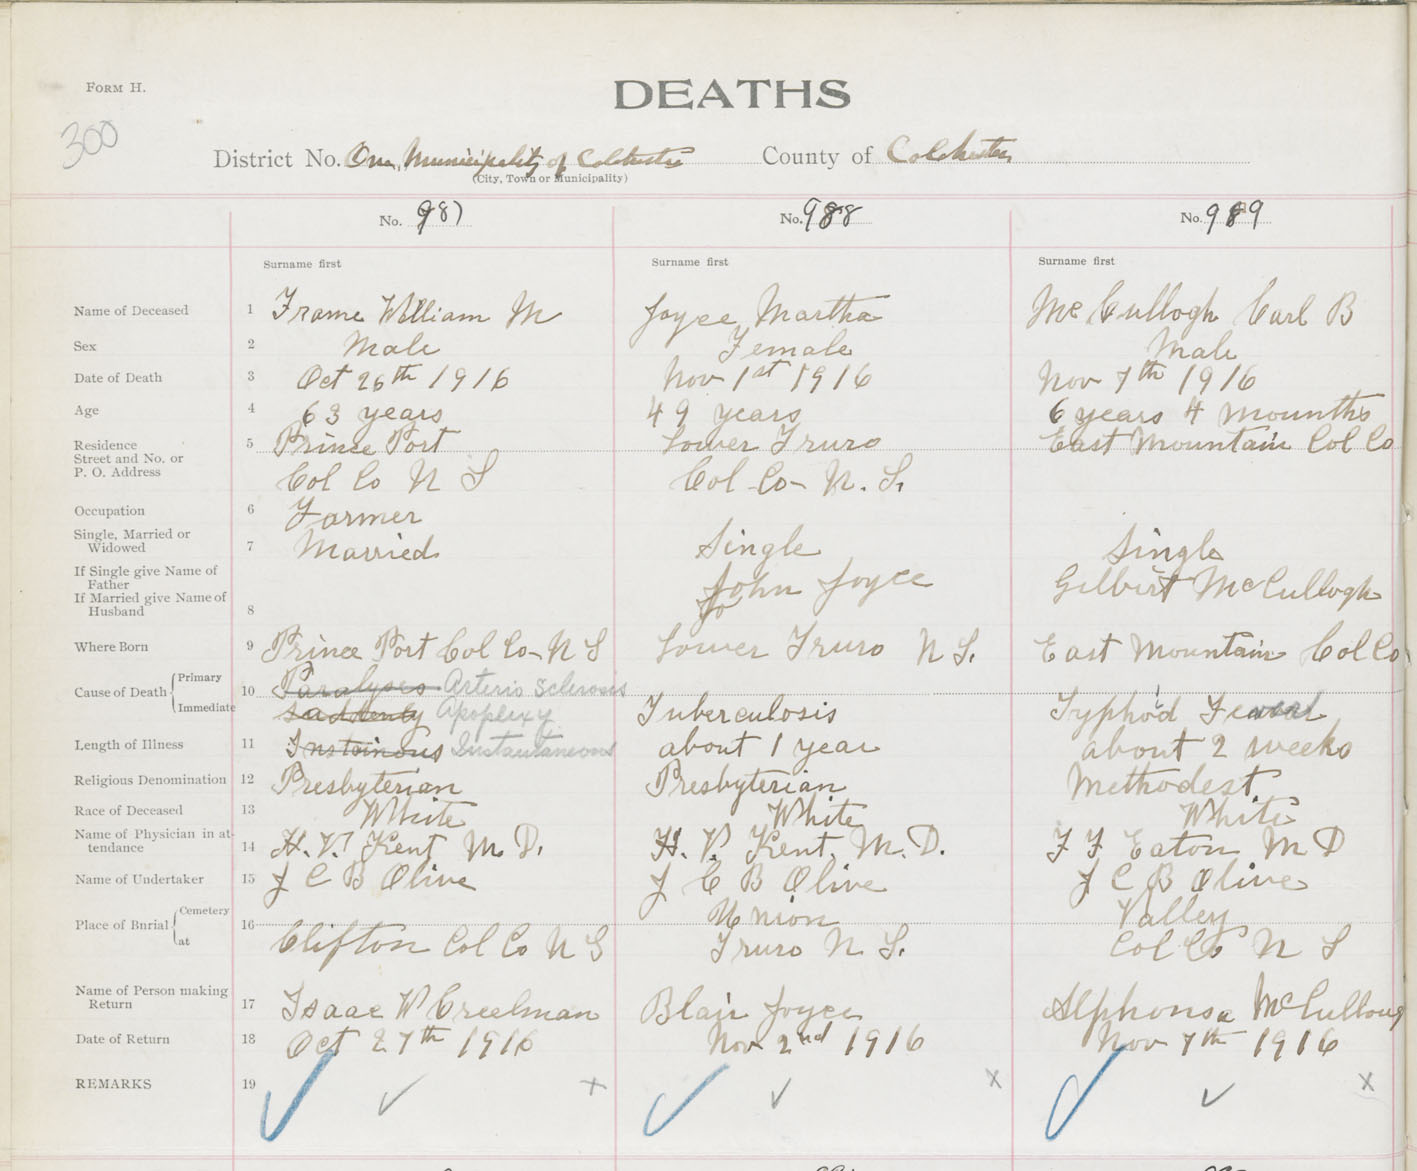 FORM H.
DEATHS
300
District No. One, Municipality of Colchester County of Colchester
(City, Town or Municipality)
No. 987 No. 988 No. 989
Surname first Surname first Surname first
Name of Deceased 1 Frame William M Joyce Martha McCullogh Carl B
Sex 2 Male Female Male
Date of Death 3 Oct 26th 1916 Nov 1st 1916 Nov 7th 1916
Age 4 63 years 49 years 6 years 4 mounths
Residence 5 Prince Port Lower Truro East Mountain Col Co
Street and No. or
P. O. Address Col Co N S Col Co N. S.
Occupation 6 Farmer
Single, Married or
Widowed 7 Married Single Single
If Single give Name of
Father John Joyce Gilbirt McCullogh
If Married give Name of
Husband 8 Jo
Where Born 9 Prince Port Col Co N S Lower Truro N S. East Mountain Col Co
Cause of Death Primary 10 Paralyses Arterio Sclerosis
Immediate suddenly Apoplexy Tuberculosis Typhoid Feaver
Length of Illness 11 Instainous Instantaneous about 1 year about 2 weeks
Religious Denomination 12 Presbyterian Presbyterian Methodest
Race of Deceased 13 White White White
Name of Physician in at-
tendance 14 H. V. Kent M. D. H. V. Kent M. D. F F Eaton M D
Name of Undertaker 15 J C B Olive J C B Olive J C B Olive
Place of Burial Cemetery 16 Union Valley
at Clifton Col Co N S Truro N S. Col Co N S
Name of Person making
Return 17 Isaac W Creelman Blair Joyce Alphonsa McCulloug
Date of Return 18 Oct 27th 1916 Nov 2nd 1916 Nov 7th 1916
REMARKS 19 x x x